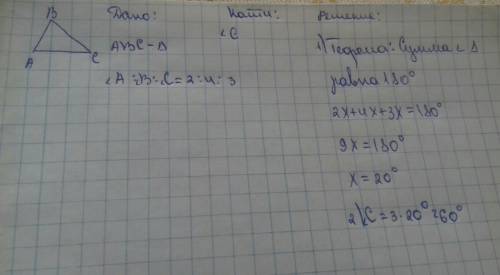 B
A
C
Дано:
ABC - Δ
∠A:B:C = 2:4:3
Найти:
∠C
Решение:
1) Теорема: Сумма ∠ Δ
равна 180°
2x+4x+3x=180°
9x=180°
x=20°
2) C=3·20°=60°